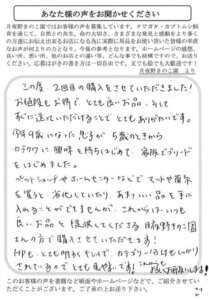 あなた様の声をお聞かせください
月夜野きのこ園ではお客様の声を募集しています。クワガタ・カブトムシ飼
育を通じて、自然との共生、命の大切さ、さまざまな発見と感動をより多く
の方達にお伝え出来るお店になる為に実際に用品をお使い頂いた皆様の率直
なお声が何よりの力となり、今後の参考となります。ホームページの感想、
良い所、悪い所、他のお店との違い等、どんな事でも結構ですのでお寄せ下
さい。応募はがきの書き方は一切自由です。文でも絵でも大歓迎です！
月夜野きのこ園 より
この度、2回目の購入をさせていただきました！
お値段もお得で とても良いお品、そして
すぐに送っていただけることで とてもありがたいです。
今年9歳になった息子が 5歳のときから
クワガタに興味を持ちはじめて、家族でブリード
をはじめました。
ペットショップやホームセンターなどで マットや菌糸
を買うと 劣化していたり、あまりいい品を手に
入れることができませんが、これからは、いつも
良いお品を提供してくださる 月夜野きのこ園
さんの方で購入させていただきます！
HPも、とても明るくキレイで カテゴリーわけもしっかり
されているので とても見やすいです！これからも
よろしくお願いします！
このお客様の声を書籍など紙面やホームページなどで、ご紹介させてい
ただくことがございます。ご了承の上お送り下さい。